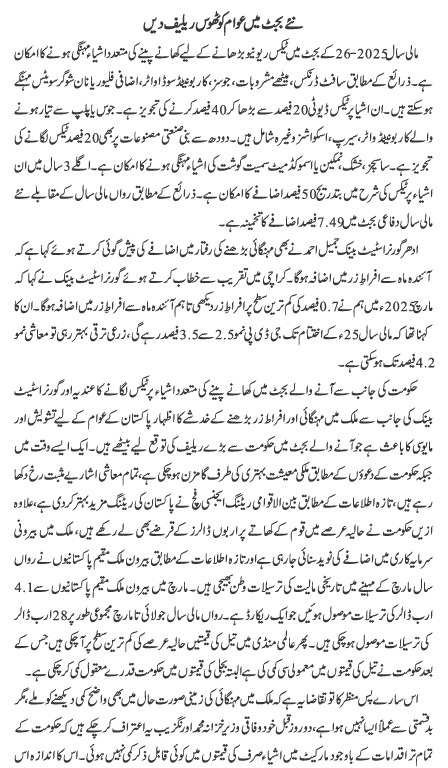 نئے بجٹ میں عوام کو ٹھوس ریلیف دیں
مالی سال 2025-26 کے بجٹ میں ٹیکس ریونیو بڑھانے کے لیے کھانے پینے کی متعدد اشیاء مہنگی ہونے کا امکان
ہے۔ ذرائع کے مطابق سافٹ ڈرنکس، میٹھے مشروبات، جوسز، کاربونیٹڈ سوڈا واٹر، اضافی فلیور یا نان شوگر سویٹس مہنگے
ہوسکتے ہیں۔ ان اشیاء پر ٹیکس ڈیوٹی 20 فیصد سے بڑھا کر 40 فیصد کرنے کی تجویز ہے۔ جوس یا پلپ سے تیار ہونے
والے کاربونیٹڈ واٹر، سیرپ، اسکواشز وغیرہ شامل ہیں۔ دودھ سے بنی صنعتی مصنوعات پر بھی 20 فیصد ٹیکس لگانے کی
تجویز ہے۔ ساسیجز، خشک، نمکین یا اسموکڈ میٹ سمیت گوشت کی اشیاء مہنگی ہونے کا امکان ہے۔ اگلے 3 سال میں ان
اشیاء پر ٹیکس کی شرح میں بتدریج 50 فیصد اضافے کا امکان ہے۔ ذرائع کے مطابق رواں مالی سال کے مقابلے نئے
مالی سال دفاعی بجٹ میں 7.49 فیصد اضافے کا تخمینہ ہے۔
ادھر گورنر اسٹیٹ بینک جمیل احمد نے بھی مہنگائی بڑھنے کی رفتار میں اضافے کی پیش گوئی کرتے ہوئے کہا ہے کہ
آئندہ ماہ سے افراطِ زر میں اضافہ ہوگا۔ کراچی میں تقریب سے خطاب کرتے ہوئے گورنر اسٹیٹ بینک نے کہا کہ
مارچ 2025ء میں ہم نے 0.7 فیصد کی کم ترین سطح پر افراطِ زر دیکھی تاہم آئندہ ماہ سے افراطِ زر میں اضافہ ہوگا۔ ان کا
کہنا تھا کہ مالی سال 25ء کے اختتام تک جی ڈی پی نمو 2.5 سے 3.5 فیصد رہے گی، زرعی ترقی بہتر رہی تو معاشی نمو
4.2 فیصد تک ہوسکتی ہے۔
حکومت کی جانب سے آنے والے بجٹ میں کھانے پینے کی متعدد اشیاء پر ٹیکس لگانے کا عندیہ اور گورنر اسٹیٹ
بینک کی جانب سے ملک میں مہنگائی اور افراطِ زر بڑھنے کے خدشے کا اظہار پاکستان کے عوام کے لیے تشویش اور
مایوسی کا باعث ہے جو آنے والے بجٹ میں حکومت سے بڑے ریلیف کی توقع لیے بیٹھے ہیں۔ ایک ایسے وقت میں
جبکہ حکومت کے دعوؤں کے مطابق ملکی معیشت بہتری کی طرف گامزن ہوچکی ہے، تمام معاشی اشاریے مثبت رخ دکھا
رہے ہیں، تازہ اطلاعات کے مطابق بین الاقوامی ریٹنگ ایجنسی فچ نے پاکستان کی ریٹنگ مزید بہتر کردی ہے، علاوہ
ازیں حکومت نے حالیہ عرصے میں قوم کے کھاتے پر اربوں ڈالرز کے قرضے بھی لے رکھے ہیں، ملک میں بیرونی
سرمایہ کاری میں اضافے کی نوید سنائی جارہی ہے اور تازہ اطلاعات کے مطابق بیرون ملک مقیم پاکستانیوں نے رواں
سال مارچ کے مہینے میں تاریخی مالیت کی ترسیلات وطن بھیجی ہیں۔ مارچ میں بیرون ملک مقیم پاکستانیوں سے 4.1
ارب ڈالر کی ترسیلات موصول ہوئیں جو ایک ریکارڈ ہے۔ رواں مالی سال جولائی تا مارچ مجموعی طور پر 28 ارب ڈالر
کی ترسیلات موصول ہوچکی ہیں۔ پھر عالمی منڈی میں تیل کی قیمتیں حالیہ عرصے کی کم ترین سطح پر آچکی ہیں جس کے
بعد حکومت نے تیل کی قیمتوں میں معمولی سی کمی کی ہے البتہ بجلی کی قیمتوں میں حکومت قدرے معقول کمی کرچکی ہے۔
اس سارے پس منظر کا تو تقاضا یہ ہے کہ ملک میں مہنگائی کی زمینی صورت حال میں بھی واضح کمی دیکھنے کو ملے، مگر
بدقسمتی سے عملاً ایسا نہیں ہوا ہے، دو روز قبل خود وفاقی وزیر خزانہ محمد اورنگزیب یہ اعتراف کرچکے ہیں کہ حکومت کے
تمام تر اقدامات کے باوجود مارکیٹ میں اشیاء صرف کی قیمتوں میں کوئی قابل ذکر کمی نہیں ہوئی۔ اس کا اندازہ اس